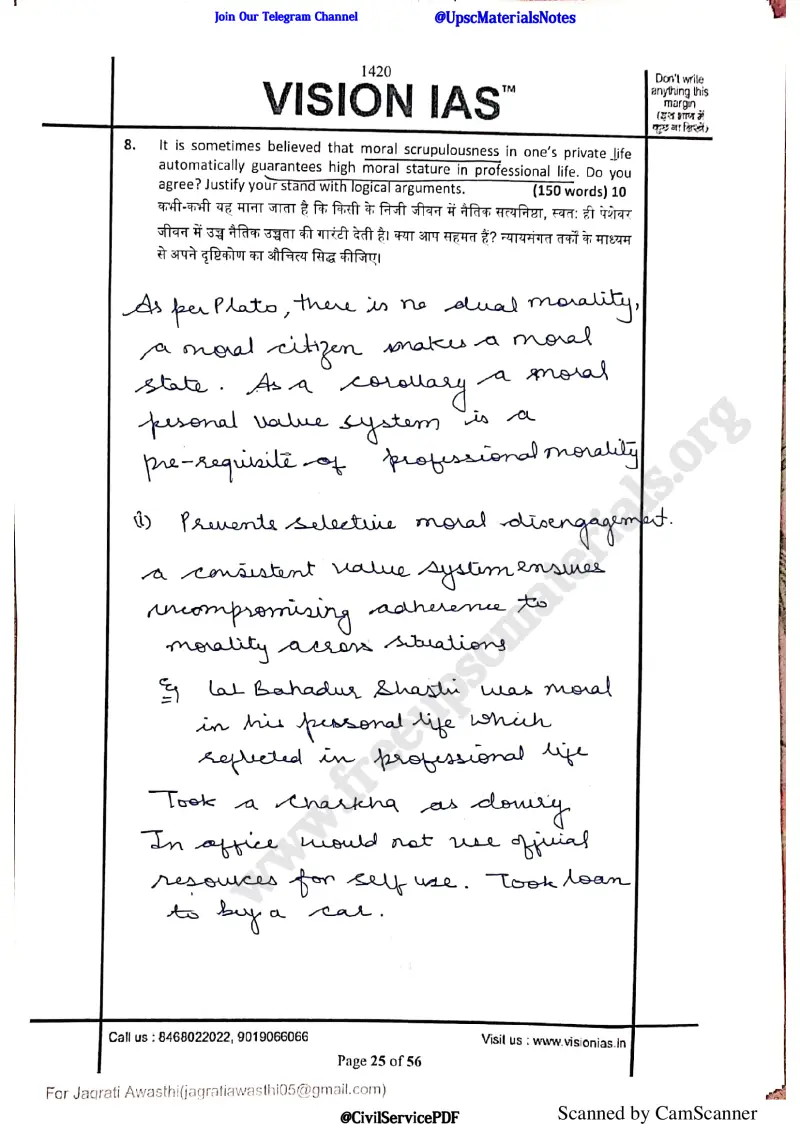 Join Our Telegram Channel @UpscMaterialsNotes
1420
VISION IAS™
Don't write
anything this
margin
(इस भाग में
कुछ ना लिखें)
8. It is sometimes believed that moral scrupulousness in one's private life
automatically guarantees high moral stature in professional life. Do you
agree? Justify your stand with logical arguments. (150 words) 10
कभी-कभी यह माना जाता है कि किसी के निजी जीवन में नैतिक सत्यनिष्ठा, स्वतः ही पेशेवर
जीवन में उच्च नैतिक उच्चता की गारंटी देती है। क्या आप सहमत हैं? न्यायसंगत तर्कों के माध्यम
से अपने दृष्टिकोण का औचित्य सिद्ध कीजिए।
As per Plato, there is no dual morality,
a moral citizen makes a moral
state. As a corollary a moral
pesonal value system is a
pre-requisite of professional morality
(i) Prevents selective moral disengagement.
a consistent value system ensures
uncompromising adherence to
morality across situations
eg Lal Bahadur Shastri was moral
in his personal life which
reflected in professional life
Took a charkha as dowry
In office would not use official
resources for self use. Took loan
to buy a car.
www.freeupscmaterials.org
Call us : 8468022022, 9019066066 Visit us : www.visionias.in
Page 25 of 56
For Jagrati Awasthi(jagratiawasthi05@gmail.com)
@CivilServicePDF Scanned by CamScanner